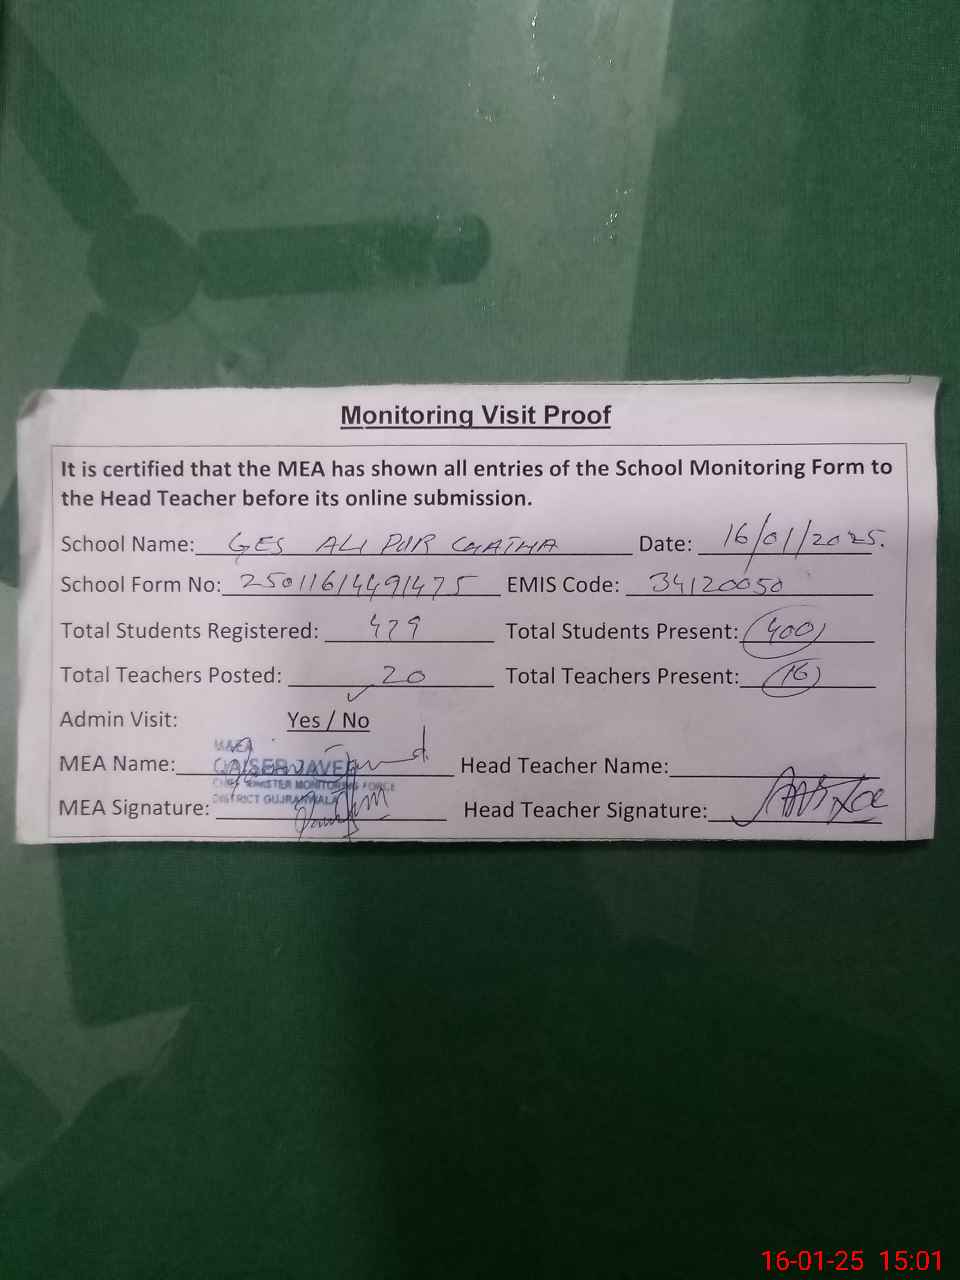 Monitoring Visit Proof
It is certified that the MEA has shown all entries of the School Monitoring Form to
the Head Teacher before its online submission.
School Name: GES ALI PUR CHATHA Date: 16/01/2025.
School Form No: 25011614491475 EMIS Code: 34120050
Total Students Registered: 479 Total Students Present: 400
Total Teachers Posted: 20 Total Teachers Present: 16
Admin Visit: Yes / No
MEA
MEA Name: QAISER JAVED Head Teacher Name:
CHIEF MINISTER MONITORING FORCE
DISTRICT GUJRANWALA
MEA Signature: Head Teacher Signature:
16-01-25 15:01